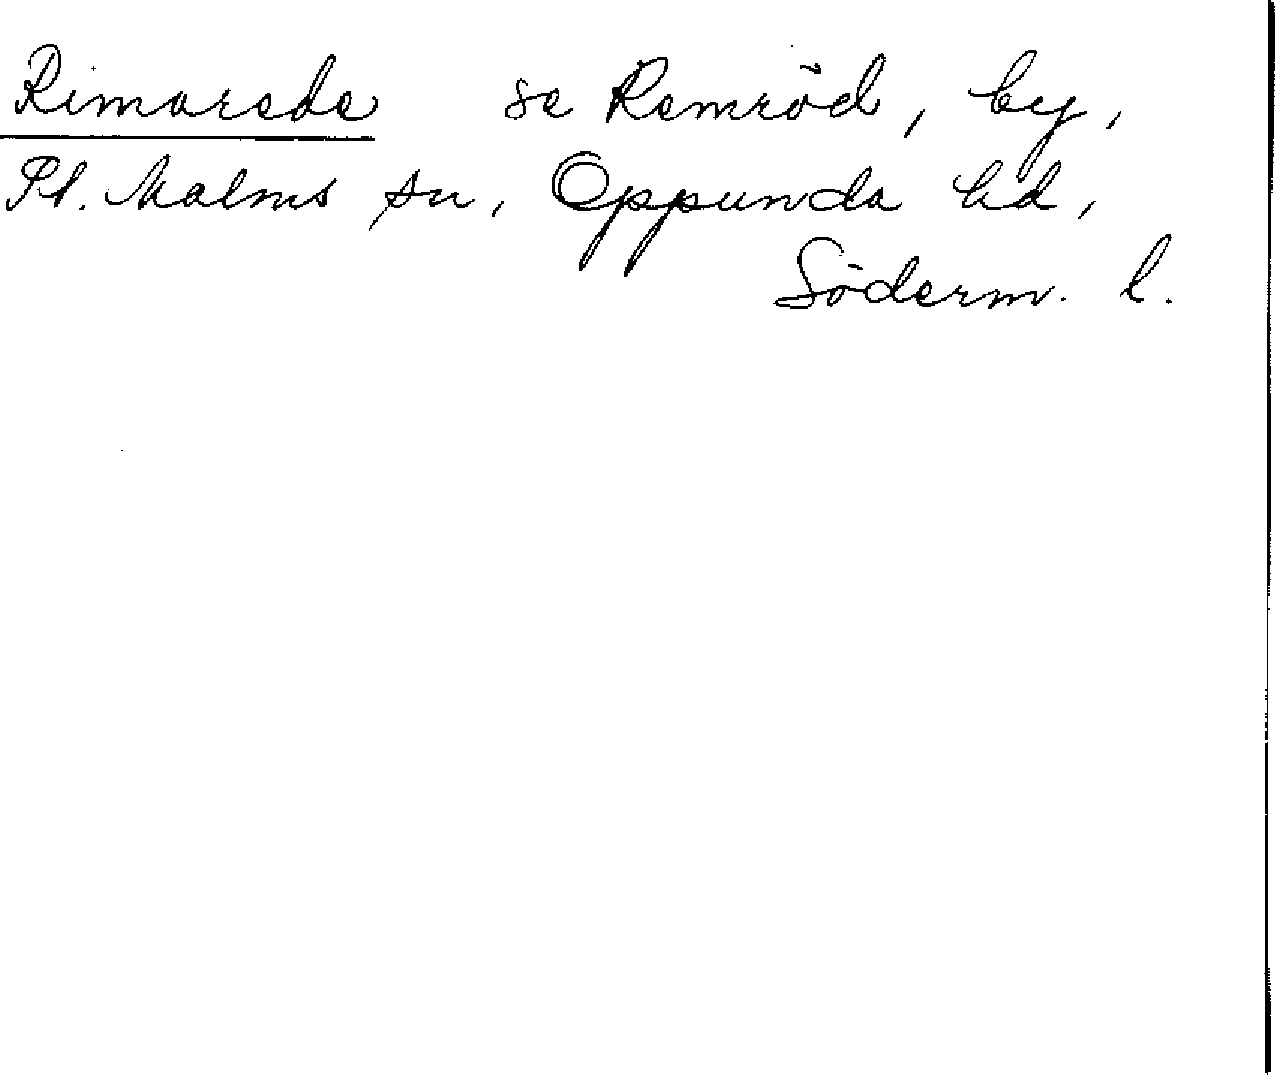 Rimarede se Remröd, by,
St. Malms sn, Oppunda hd,
Söderm. l.